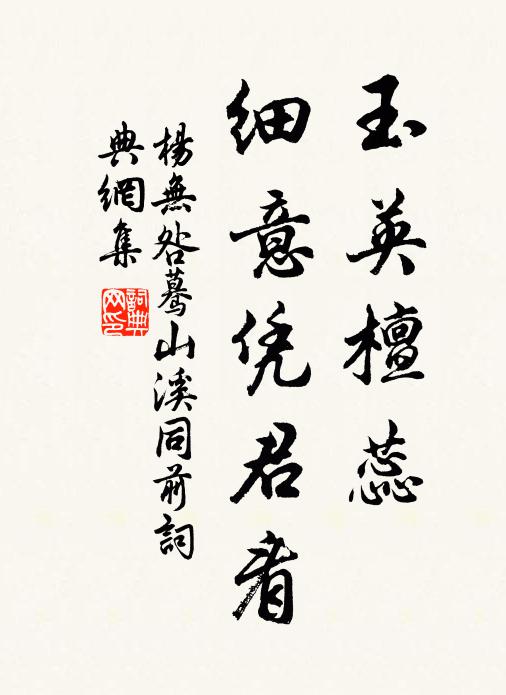 玉英檀蕊
细意凭君看
楊無咎蓦山溪同前詞
典網集
詞典
网印